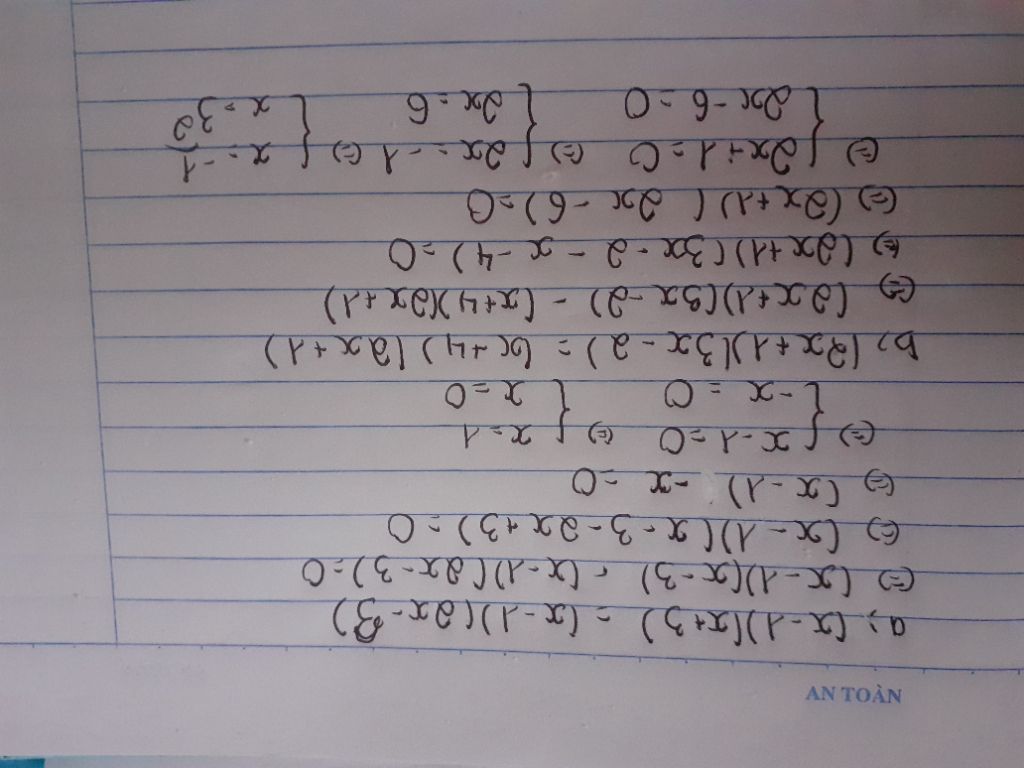 AN TOÀN
a, (x-1)(x+3) = (x-1)(2x-3)
(=) (x-1)(x-3) - (x-1)(2x-3)=0
(=) (x-1)(x-3-2x+3)=0
(=) (x-1) -x =0
(=) { x-1=0 (=) { x=1
{ -x=0 { x=0
b, (2x+1)(3x-2) = (x+4)(2x+1)
(=) (2x+1)(3x-2) - (x+4)(2x+1)
(=) (2x+1)(3x-2-x-4)=0
(=) (2x+1)(2x-6)=0
(=) { 2x+1=0 (=) { 2x=-1 (=) { x=-1/2
{ 2x-6=0 { 2x=6 { x=3